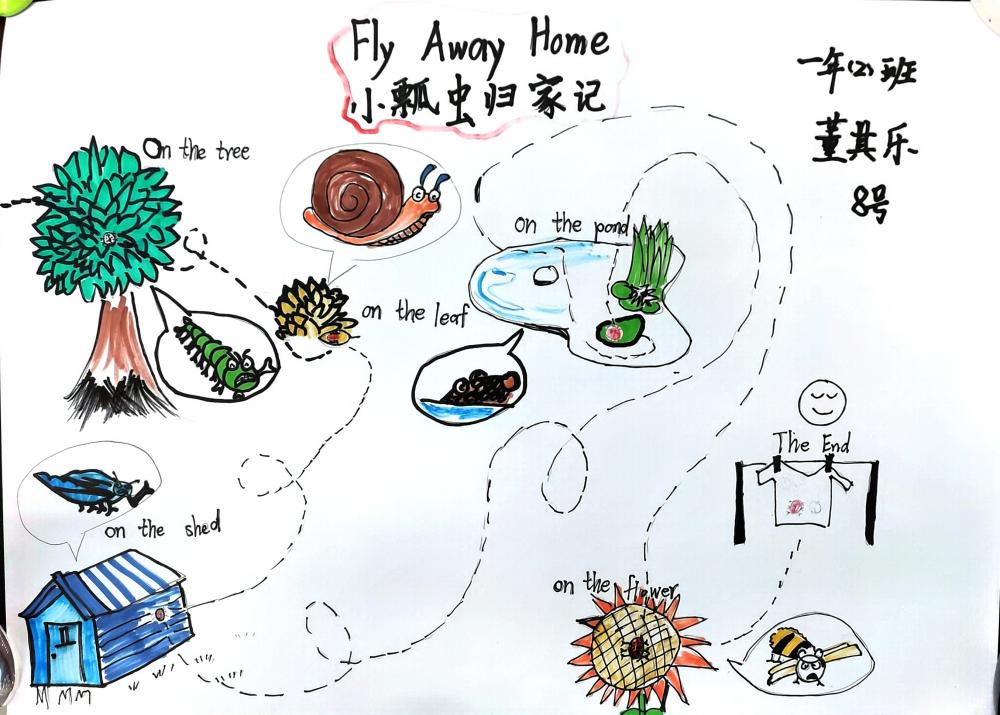 Fly Away Home
小瓢虫归家记
一年(2)班
董其乐
8号
On the tree
on the leaf
on the pond
on the shed
The End
on the flower